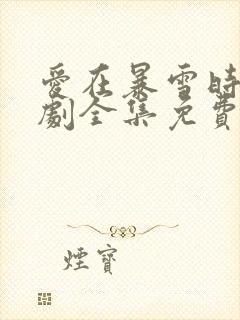 愛在暴雪時
劇全集免費
煙寶